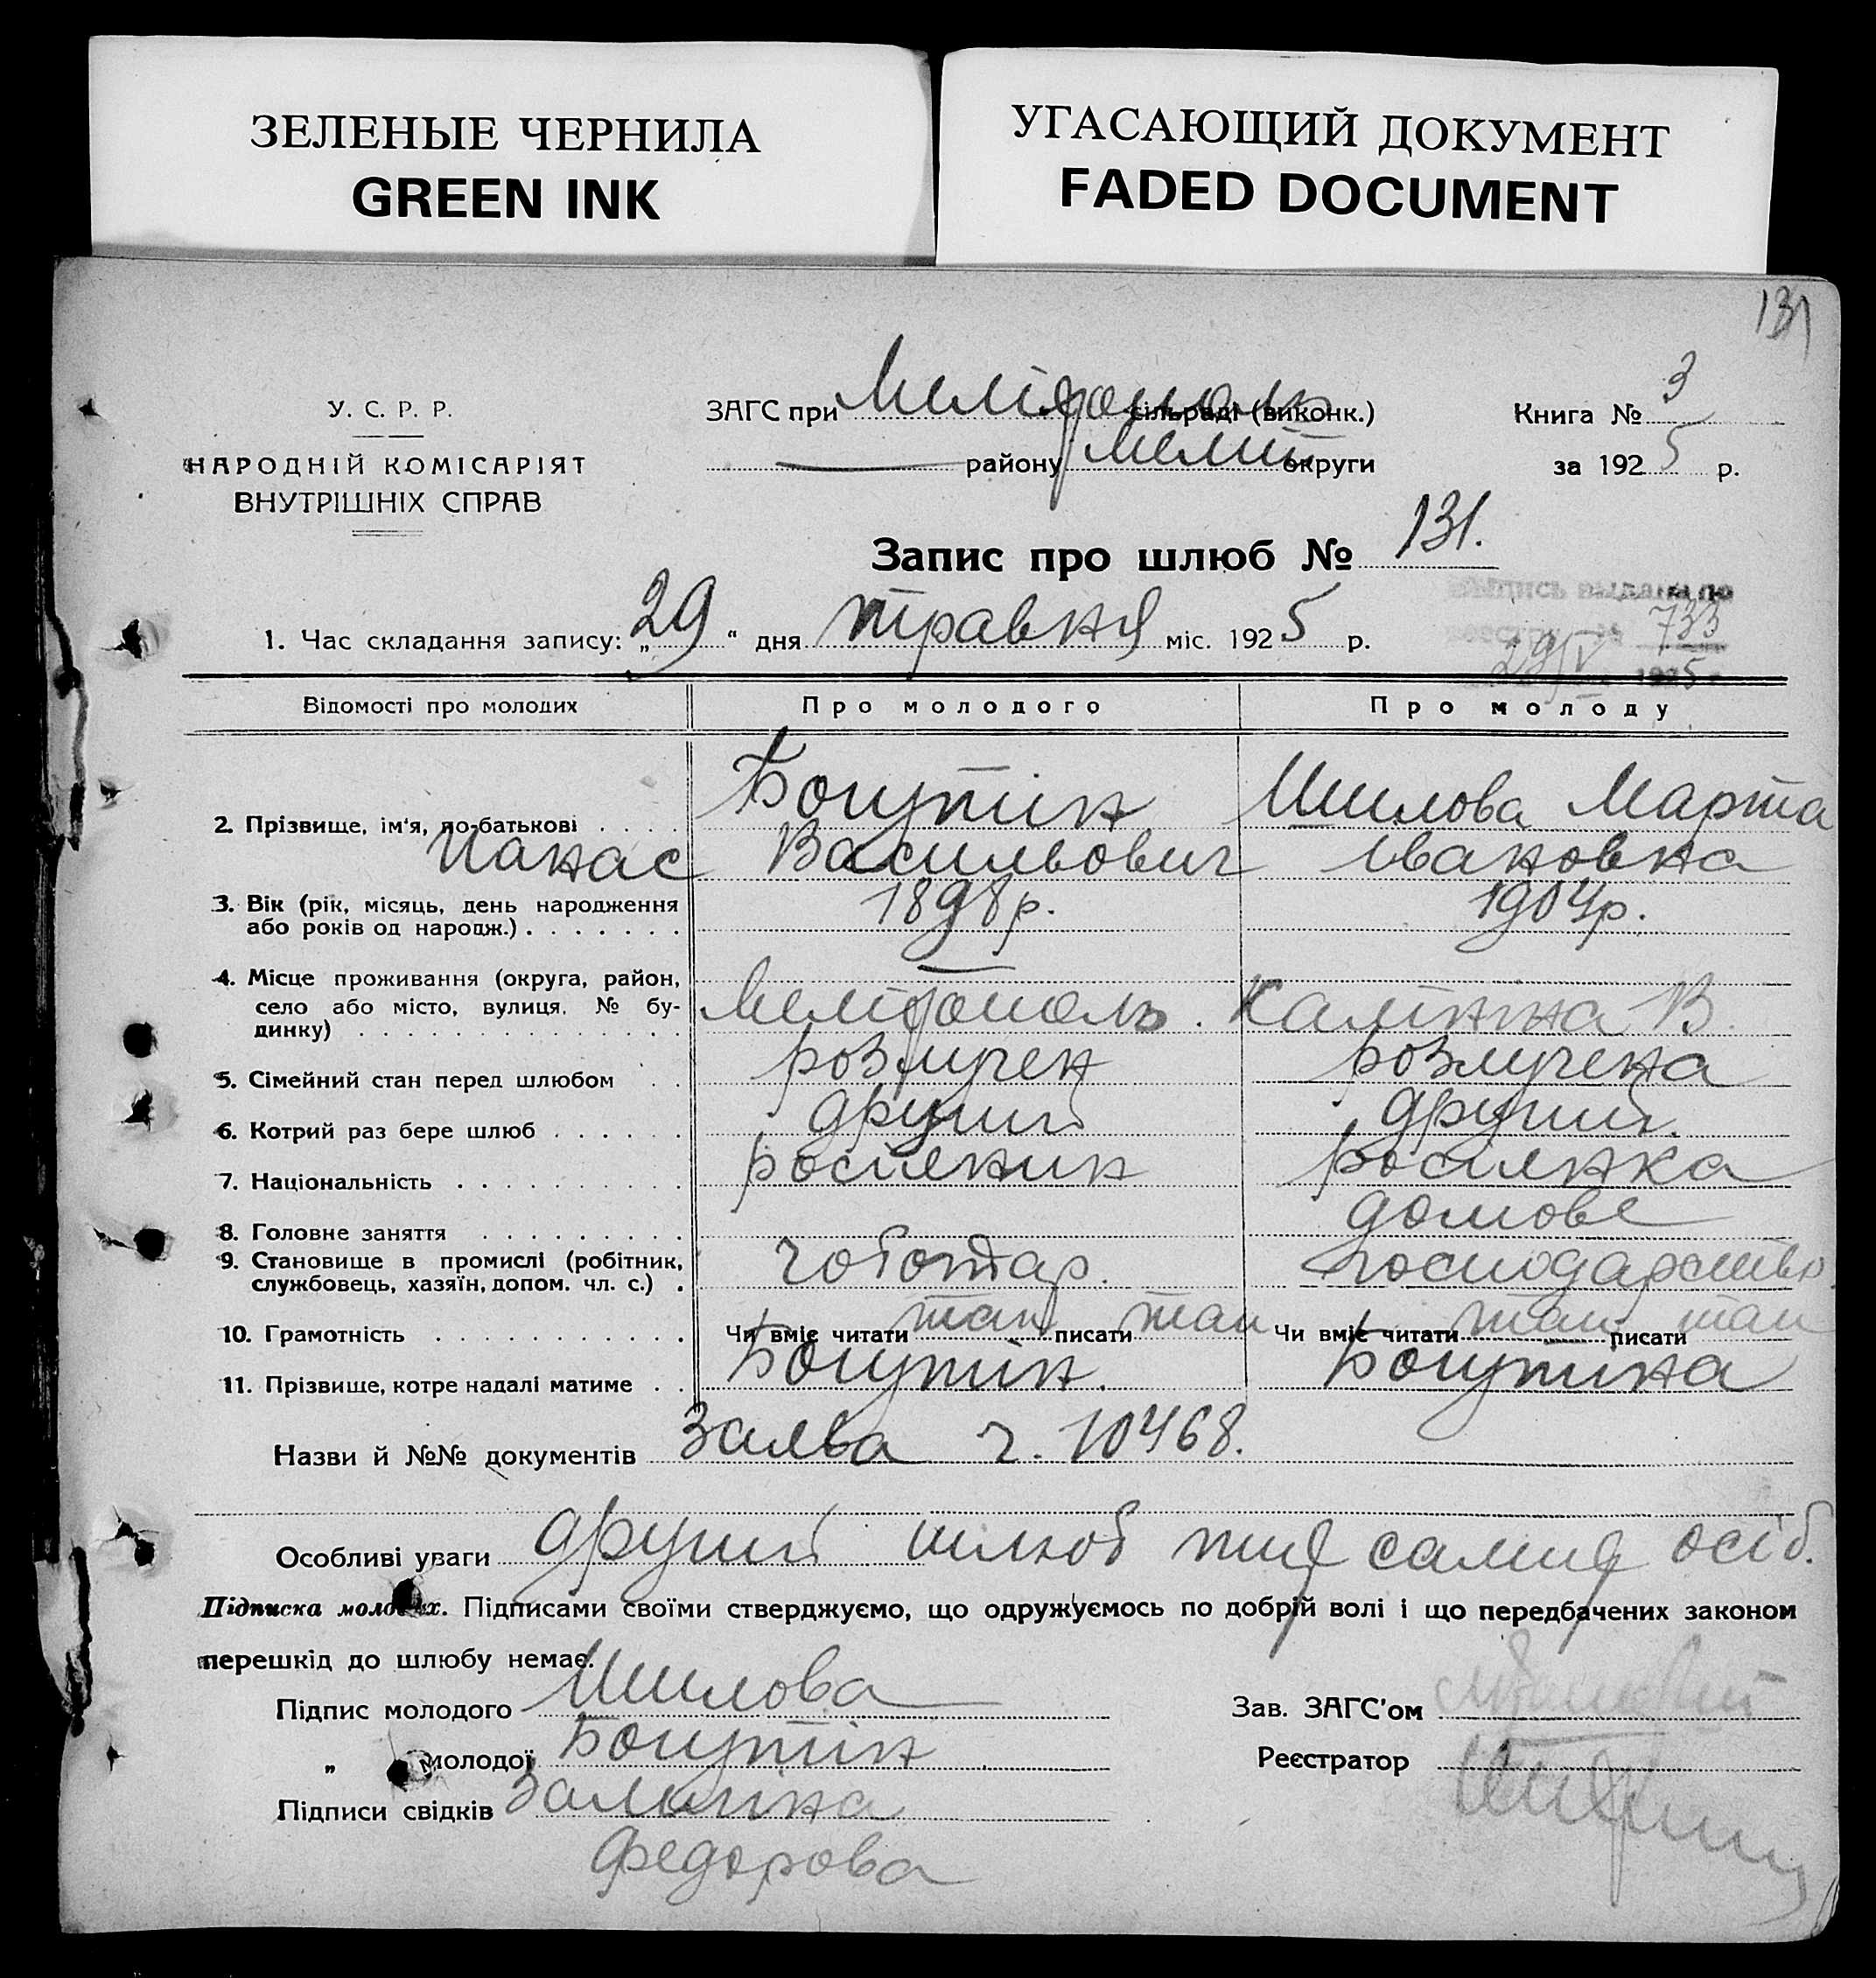 ЗЕЛЕНЫЕ ЧЕРНИЛА
GREEN INK
УГАСАЮЩИЙ ДОКУМЕНТ
FADED DOCUMENT
131
У. С. Р. Р.
НАРОДНІЙ КОМІСАРІЯТ
ВНУТРІШНІХ СПРАВ
ЗАГС при Мелітополь сільраді (виконк.)
району Меліт округи
Книга № 3
за 1925 р.
Запис про шлюб № 131.
выпись выдана по
№ 733
29/V 1925 г.
1. Час складання запису: „29“ дня травня міс. 1925 р.
Відомості про молодих Про молодого Про молоду
2. Прізвище, ім'я, по-батькові . . . . Богутін Шилова Марта
Панас Васильович Івановна
3. Вік (рік, місяць, день народження 1898 р. 1904 р.
або років од народж.) . . . . . . .
4. Місце проживання (округа, район,
село або місто, вулиця, № бу- Мелітополь. Калініна В.
динку) . . . . . . . . . . . . . .
5. Сімейний стан перед шлюбом . . розлучен розлучена
6. Котрий раз бере шлюб . . . . . . другий другий.
7. Національність . . . . . . . . . . росіянин росіянка
8. Головне заняття . . . . . . . . . домове
9. Становище в промислі (робітник, чоботар. господарство
службовець, хазяїн, допом. чл. с.) .
10. Грамотність . . . . . . . . . . . Чи вміє читати так писати так Чи вміє читати так писати так
11. Прізвище, котре надалі матиме . . Богутін. Богутіна
Назви й №№ документів Заява ч. 10468.
Особливі уваги другий шлюб тих самих осіб.
Підписка молодих. Підписами своїми стверджуємо, що одружуємось по добрій волі і що передбачених законом
перешкід до шлюбу немає.
Підпис молодого Шилова
„ молодої Богутін
Підписи свідків
Федорова
Зав. ЗАГС'ом
Реєстратор